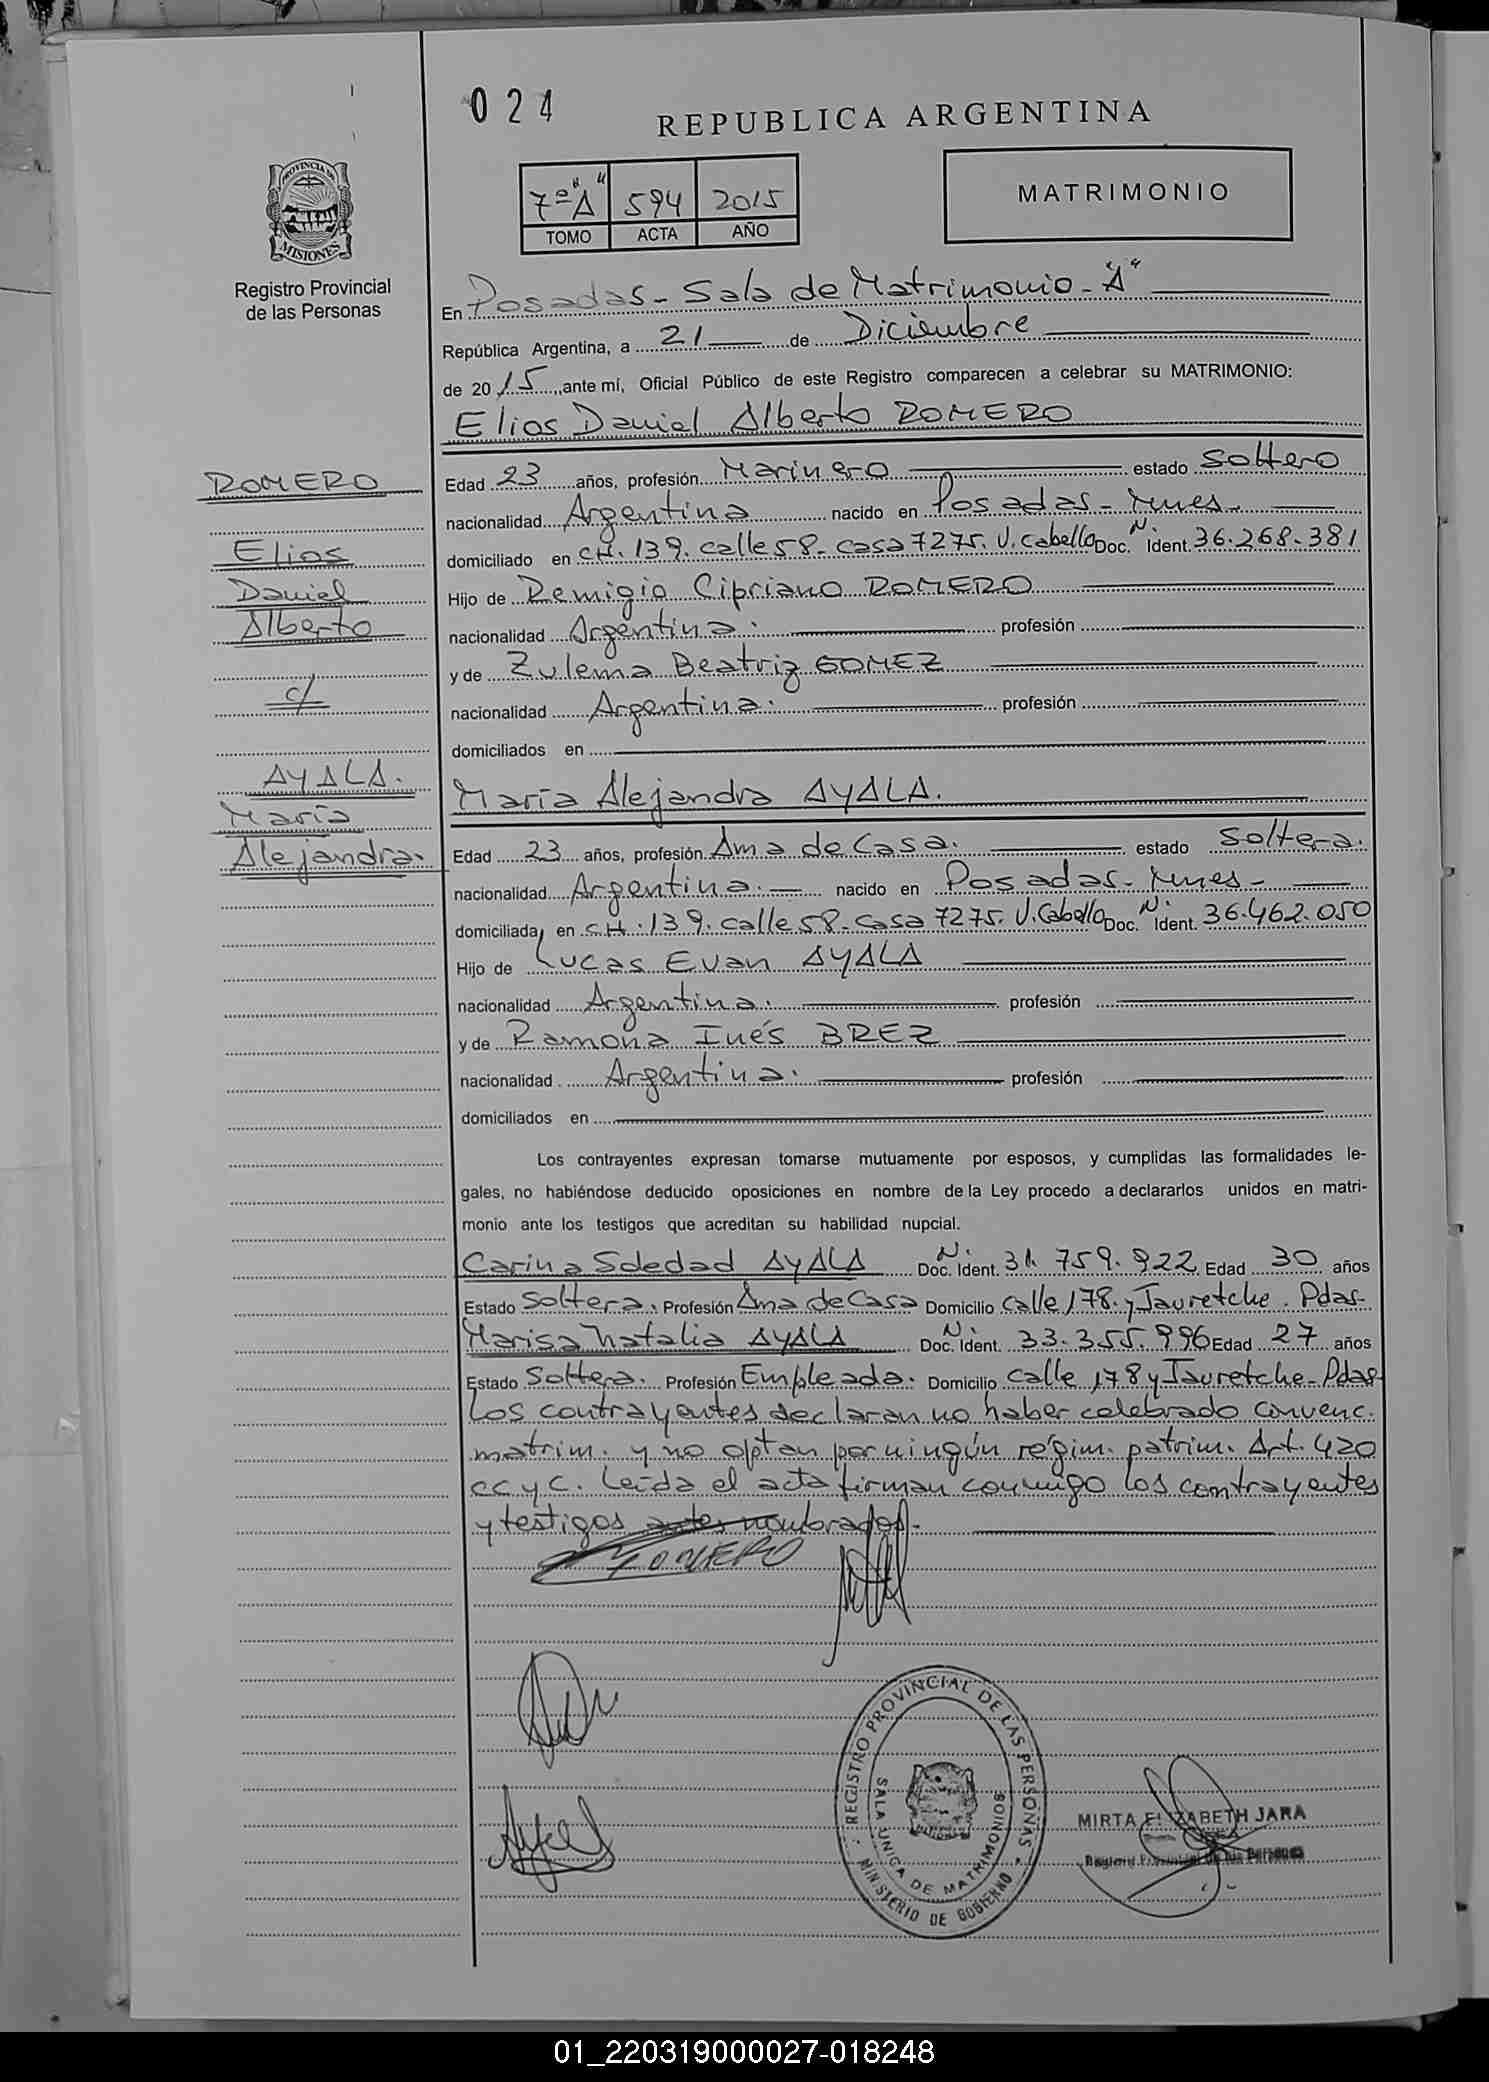 024
REPUBLICA ARGENTINA
PROVINCIA DE
MISIONES
Registro Provincial
de las Personas
7º "A" 594 2015
TOMO ACTA AÑO
MATRIMONIO
En Posadas - Sala de Matrimonio - "A"
República Argentina, a 21 de Diciembre
de 2015, ante mí, Oficial Público de este Registro comparecen a celebrar su MATRIMONIO:
Elios Daniel Alberto ROMERO
ROMERO
Elios
Daniel
Alberto
c/
AYALA.
María
Alejandra.
Edad 23 años, profesión Marinero estado Soltero
nacionalidad Argentina nacido en Posadas - Mnes.
domiciliado en CH. 139. calle 58 - casa 7275. V. Cabello Doc. N. Ident. 36.268.381
Hijo de Remigio Cipriano ROMERO
nacionalidad Argentina. profesión
y de Zulema Beatriz GOMEZ
nacionalidad Argentina. profesión
domiciliados en
María Alejandra AYALA.
Edad 23 años, profesión Ama de Casa. estado Soltera.
nacionalidad Argentina. nacido en Posadas - Mnes -
domiciliada en CH. 139. calle 58 - casa 7275. V. Cabello Doc. N. Ident. 36.462.050
Hijo de Lucas Evan AYALA
nacionalidad Argentina. profesión
y de Ramona Inés BREZ
nacionalidad Argentina. profesión
domiciliados en
Los contrayentes expresan tomarse mutuamente por esposos, y cumplidas las formalidades le-
gales, no habiéndose deducido oposiciones en nombre de la Ley procedo a declararlos unidos en matri-
monio ante los testigos que acreditan su habilidad nupcial.
Carina Soledad AYALA Doc. N. Ident. 31.759.922 Edad 30 años
Estado Soltera. Profesión Ama de Casa Domicilio calle 178 y Jauretche. Pdas-
Marisa Natalia AYALA Doc. N. Ident. 33.355.996 Edad 27 años
Estado Soltera. Profesión Empleada. Domicilio calle 178 y Jauretche - Pdas
Los contrayentes declaran no haber celebrado convenc.
matrim. y no optan por ningún régim. patrim. Art. 420
CC y C. Leída el acta firman conmigo los contrayentes
y testigos antes nombrados.
ROMERO
REGISTRO PROVINCIAL DE LAS PERSONAS
SALA UNICA DE MATRIMONIOS
MINISTERIO DE GOBIERNO
MIRTA ELIZABETH JARA
Registro Provincial de las Personas
01_220319000027-018248